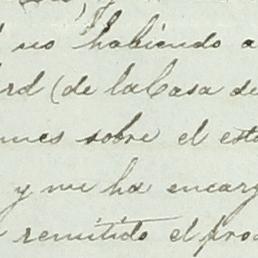 no habiendo a
rd (de la Casa de
nes sobre el est
y me ha encarg
remitido el pro